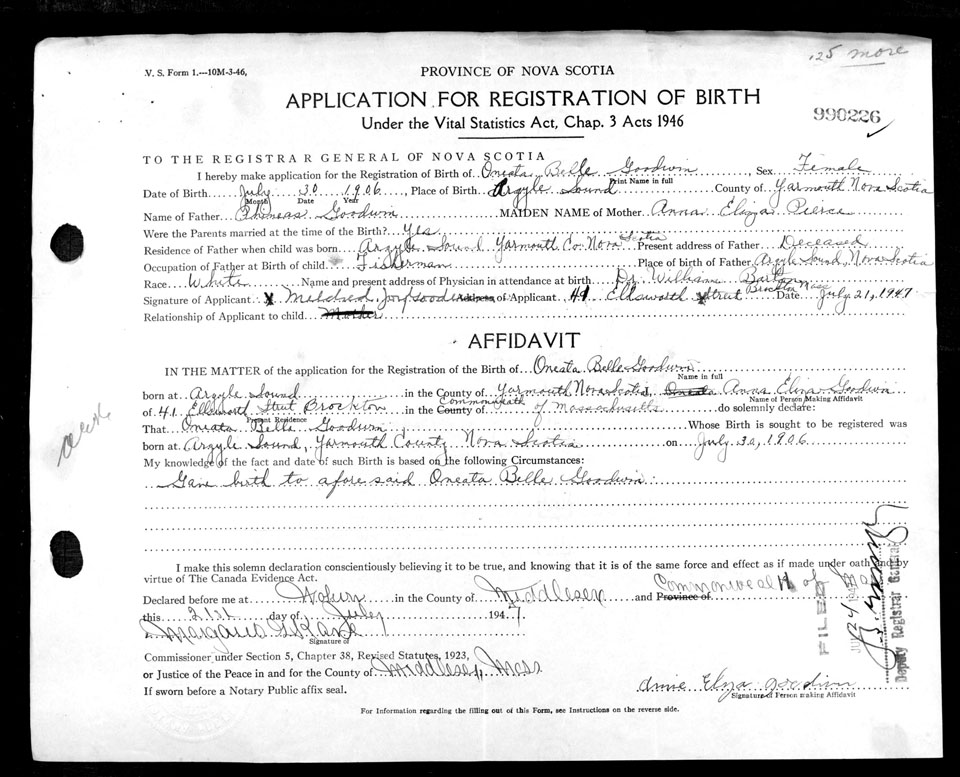 125 more
V. S. Form 1.---10M-3-46,
PROVINCE OF NOVA SCOTIA
APPLICATION FOR REGISTRATION OF BIRTH
990226
Under the Vital Statistics Act, Chap. 3 Acts 1946
TO THE REGISTRAR GENERAL OF NOVA SCOTIA
I hereby make application for the Registration of Birth of Oneata Belle Goodwin, Sex Female
Print Name in full
Date of Birth July 30 1906, Place of Birth Argyle Sound County of Yarmouth Nova Scotia
Month Date Year
Name of Father Phineas Goodwin MAIDEN NAME of Mother Anna Eliza Pierce
Were the Parents married at the time of the Birth? Yes
Residence of Father when child was born Argyle Sound Yarmouth Co. Nova Scotia Present address of Father Deceased
Occupation of Father at Birth of child Fisherman Place of birth of Father Argyle Sound, Nova Scotia
Race White Name and present address of Physician in attendance at birth Dr. William Barton
Brockton Mass
Signature of Applicant X Mildred Address of Applicant 41 Ellsworth Street Date July 21, 1947
Relationship of Applicant to child Mother
AFFIDAVIT
IN THE MATTER of the application for the Registration of the Birth of Oneata Belle Goodwin
Name in full
born at Argyle Sound in the County of Yarmouth Nova Scotia I, Oneata Anna Eliza Goodwin
Name of Person Making Affidavit
of 41 Ellsworth Street Brockton in the County of Commonwealth of Massachusetts do solemnly declare:
Present Residence
That Oneata Belle Goodwin Whose Birth is sought to be registered was
born at Argyle Sound, Yarmouth County Nova Scotia on July 30, 1906
My knowledge of the fact and date of such Birth is based on the following Circumstances:
Gave birth to aforesaid Oneata Belle Goodwin
I make this solemn declaration conscientiously believing it to be true, and knowing that it is of the same force and effect as if made under oath and by
virtue of The Canada Evidence Act.
Declared before me at Woburn in the County of Middlesex and Province of Commonwealth of Mass
this 21st day of July 1947
Signature of
Commissioner under Section 5, Chapter 38, Revised Statutes, 1923,
or Justice of the Peace in and for the County of Middlesex, Mass
If sworn before a Notary Public affix seal.
Annie Eliza Goodwin
Signature of Person making Affidavit
For Information regarding the filling out of this Form, see Instructions on the reverse side.
FILED
JUL 24 1947
Deputy Registrar General